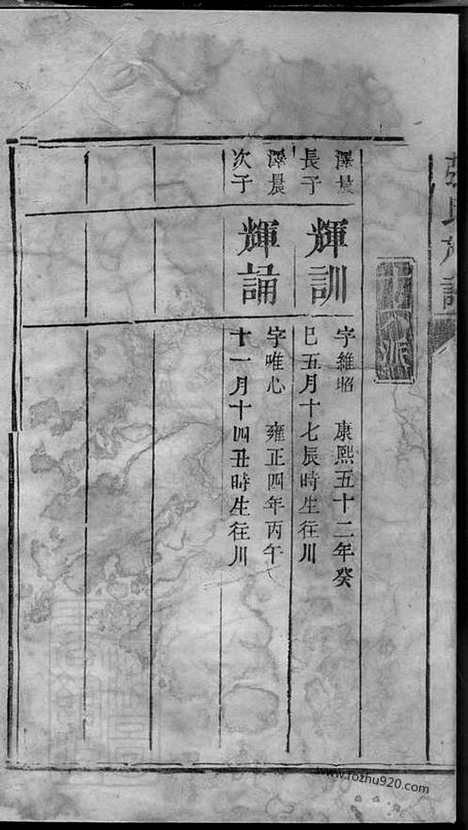 氏族譜
派
澤晨
長子
輝訓
字維昭 康熙五十二年癸
巳五月十七辰時生往川
澤晨
次子
輝誦
字唯心 雍正四年丙午
十一月十四丑時生往川
www.fozhu920.com